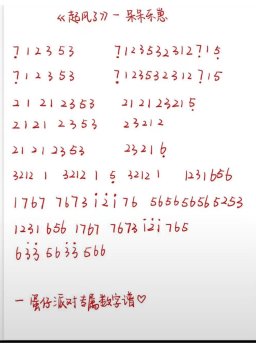 《起风了》一呆呆乐葱
7̣ 1 2 3 5 3    7̣ 1 2 3 5 3 2 3 1 2 7̣ 1 5̣
7̣ 1 2 3 5 3    7̣ 1 2 3 5 3 2 3 1 2 7̣ 1 5
2 1 2 1 2 3 5 3    2 1 2 1 2 3 2 1 5̣
2 1 2 1 2 3 5 3    2 3 2 1 2
2 1 2 1 2 3 5 3    2 3 2 1 6̣
3 2 1 2 1    3 2 1 2 1 5̣    3 2 1 2 1    1 2 3 1 6 5 6
1 7 6 7    7 6 7 3 i̇ 2̇ i̇ 7 6    5 6 5 6 5 6 5 5 2 5 3
1 2 3 1 6 5 6    1 7 6 7    7 6 7 3 i̇ 2̇ i̇ 7 6 5
6 3̇ 3̇ 5 6 3̇ 3̇ 5 6 6
一 蛋仔派对专属数字谱♡